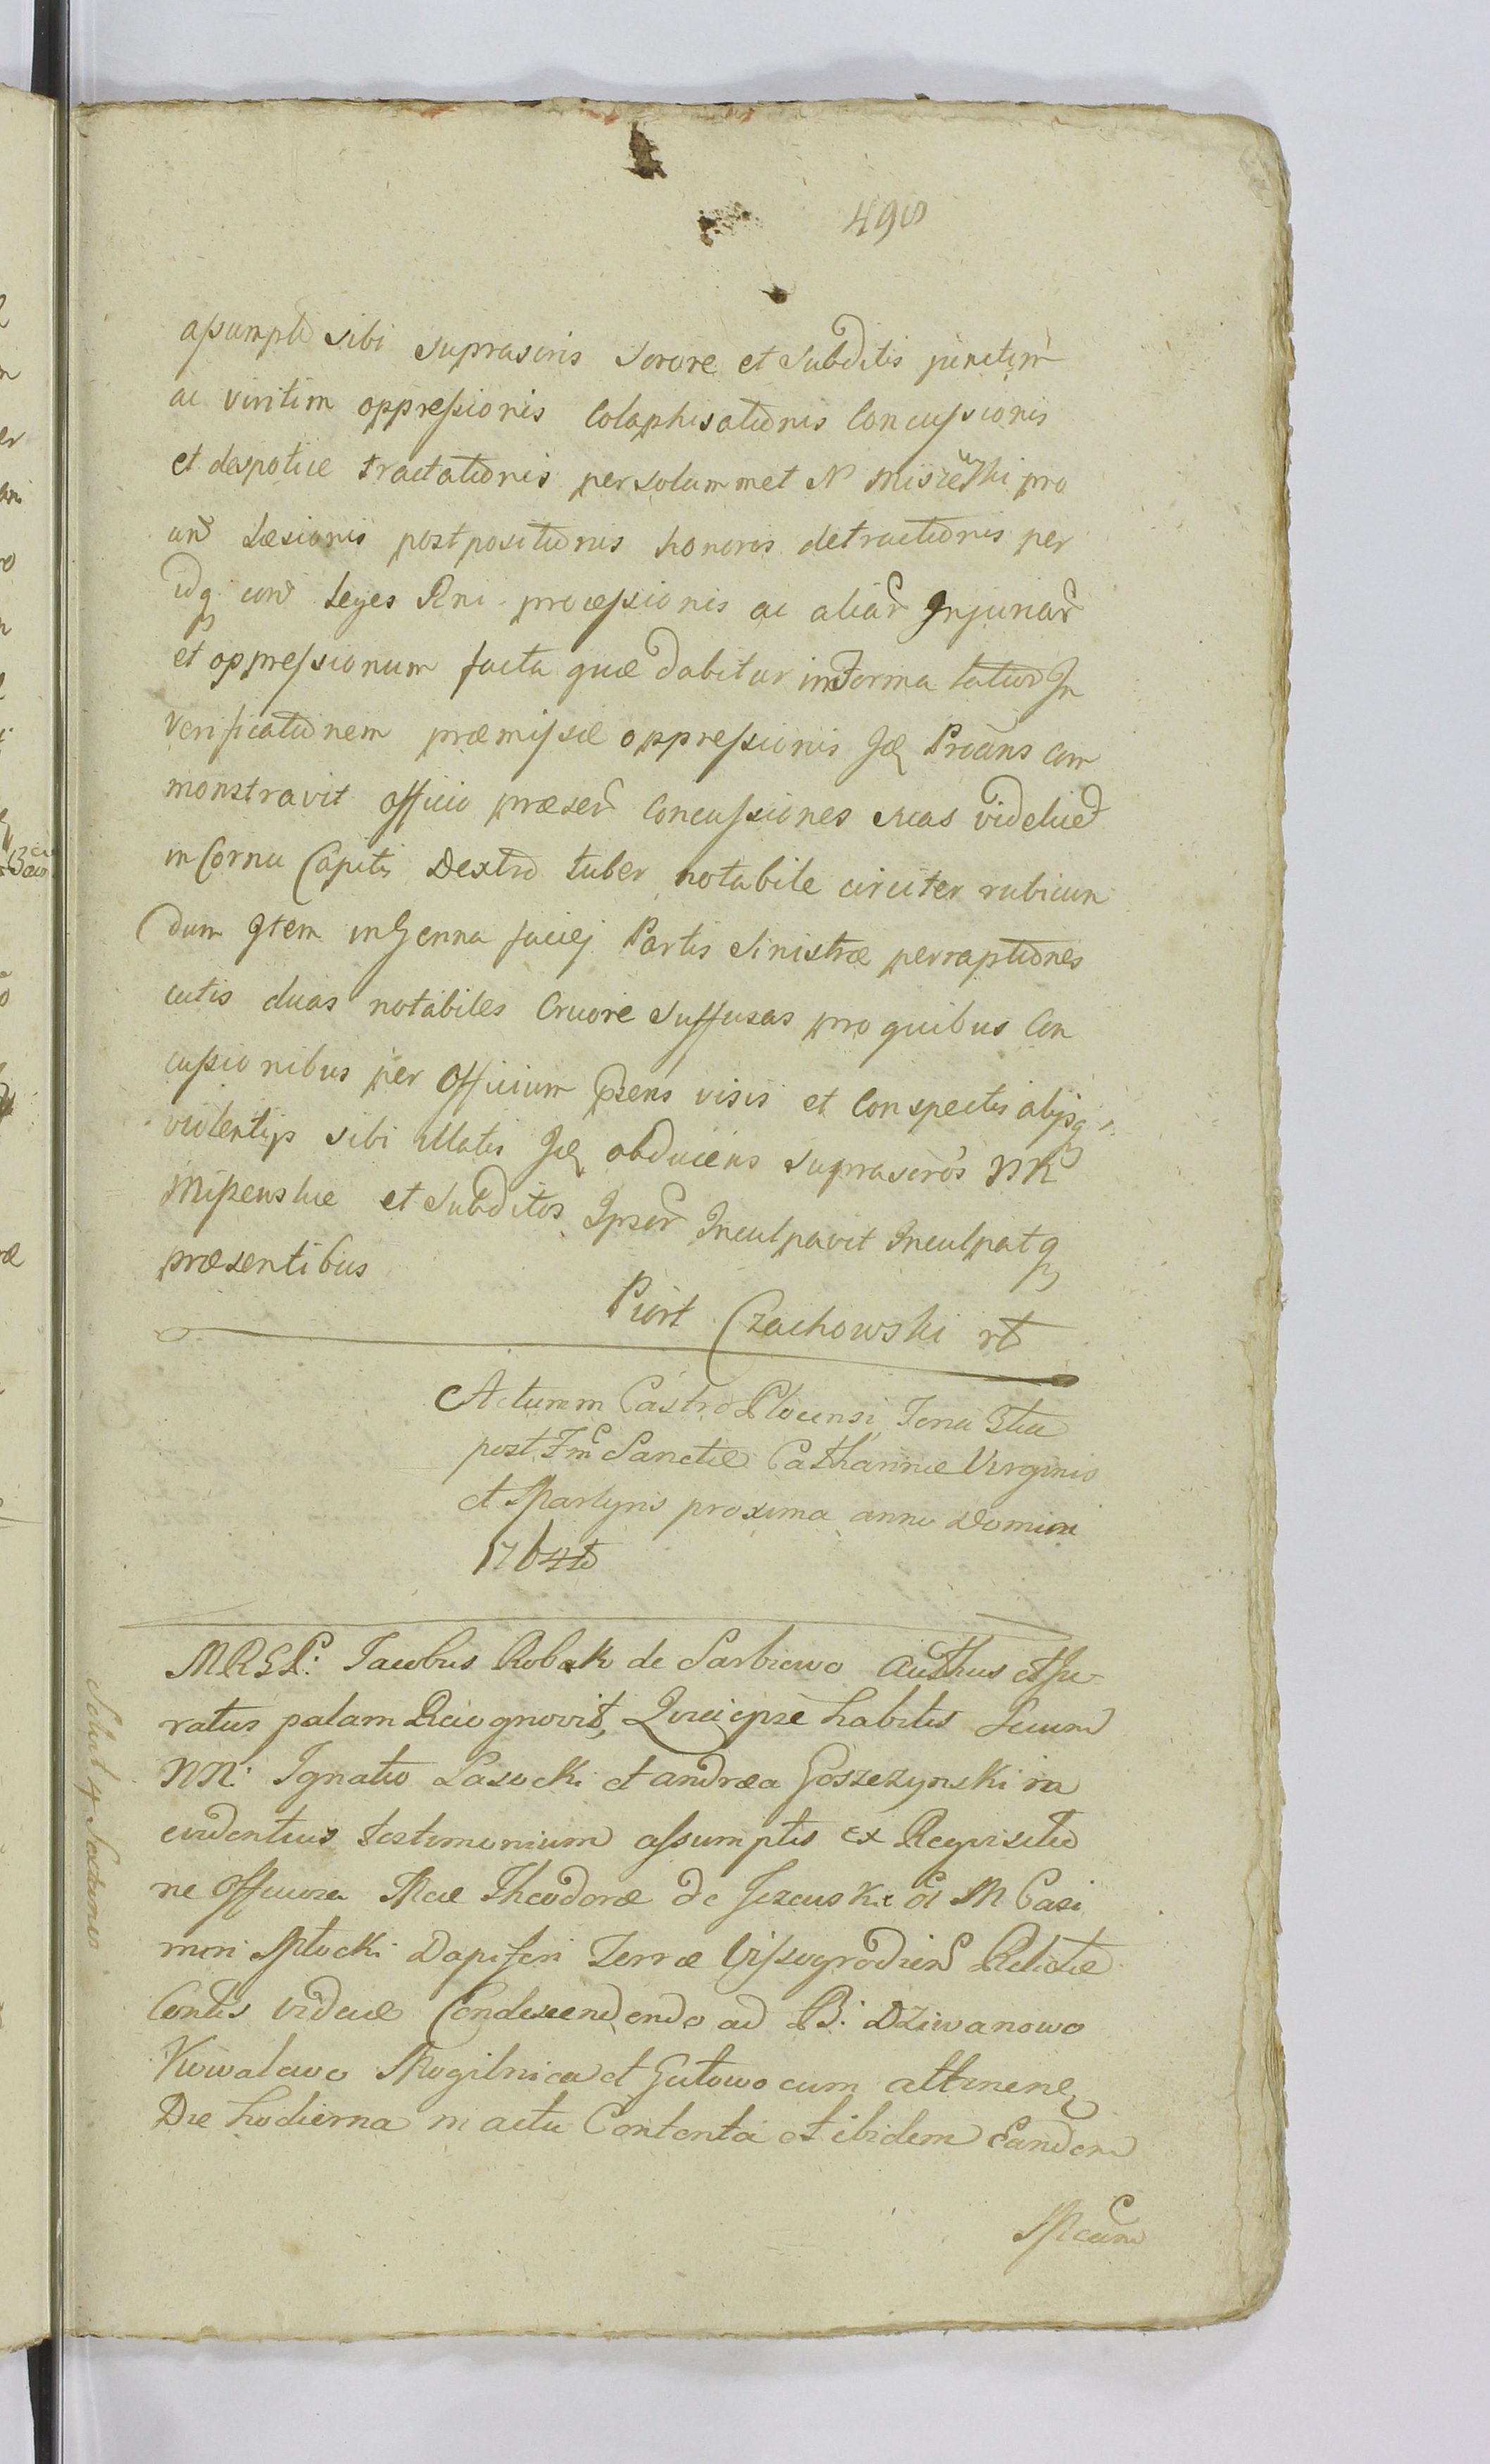 498
assumpto sibi suprascris sorore et subditis junctim
ac viritim oppressionis Colaphisationis Concussionis
et despotice tractationis per solummet N Miszewski pro
und Læsionis postpositionis honoris detractionis per
idq cond Leges Rni processionis ac aliar Injuriar
et oppressionum facta quæ dabitur in Forma latior In
verificationem præmissæ oppressionis Idq Proāns com
monstravit officio præsenti Concussiones suas videlicet
in Cornu Capitis Dextro tuber notabile circiter rubicun
dum Item in Genna faciej Partis Sinistræ perraptiones
cutis duas notabiles Cruore Suffusas pro quibus Con
cussionibus per Officium psens visis et Conspectis alijsq
violentijs sibi illatis Idq obducens suprascros NN
Miszewskie et Subditos Ipsor Inculpavit Inculpatq
præsentibus
Piort Czachowski
Actum in Castro Plocensi Feria 3tia
post Fm Sanctæ Catharinæ Virginis
et Martyris proxima anno Domini
1764to
Jacobus Robak de Sarbiewo Authus et Ju
ratus palam Recognovit, Quia ipse habitis Secum
NN: Ignatio Lasocki et Andrea Goszczynski in
evidentius testimonium assumptis ex Requisitio
ne Officiosa Mcæ Theodoræ de Jezewskie M Casi
miri Płocki Dapiferi Terræ Vissogrodien Relictæ
Contis viduæ Condescendendo ad B: Dziwanowo
Kowalewo Mogilnica et Gutowo cum attinen
Die hodierna in actu Contenta et ibidem Eandem
Mcam